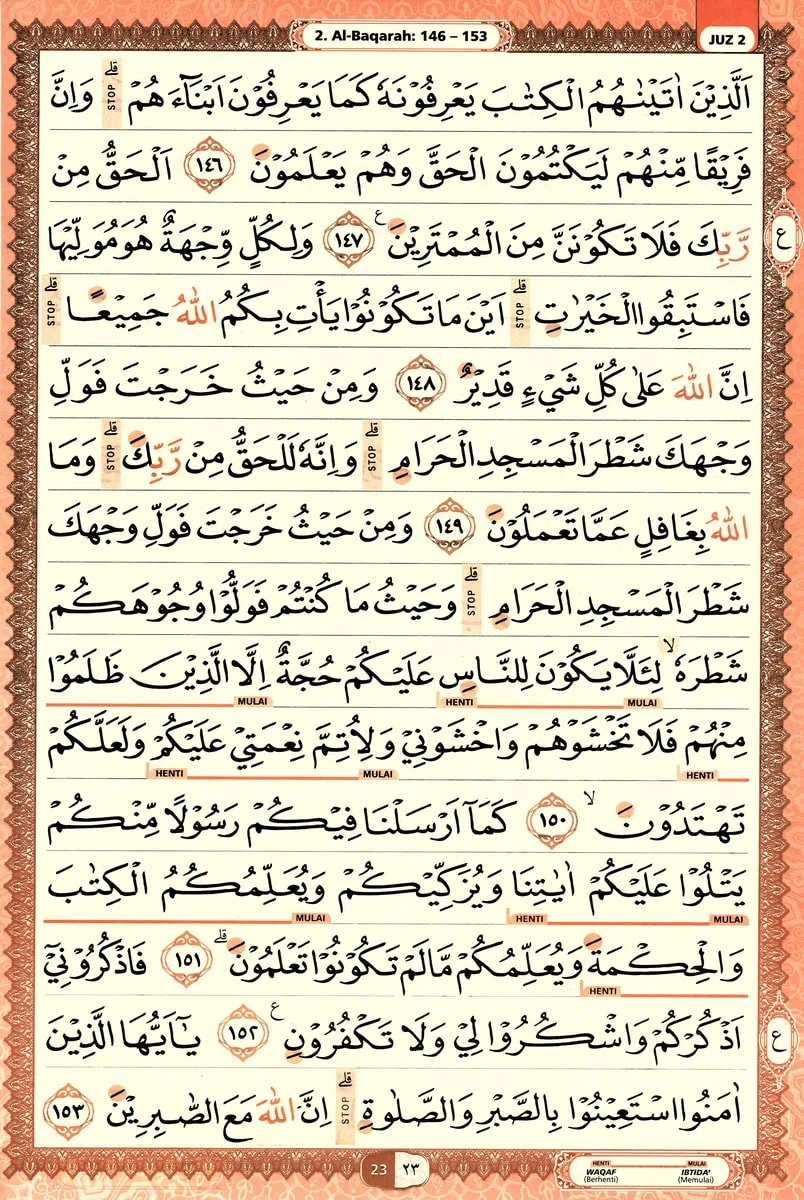 2. Al-Baqarah: 146 – 153
JUZ 2
اَلَّذِيْنَ اٰتَيْنٰهُمُ الْكِتٰبَ يَعْرِفُوْنَهٗ كَمَا يَعْرِفُوْنَ اَبْنَاۤءَهُمْ ۗ STOP وَاِنَّ
فَرِيْقًا مِّنْهُمْ لَيَكْتُمُوْنَ الْحَقَّ وَهُمْ يَعْلَمُوْنَ ١٤٦ اَلْحَقُّ مِنْ
رَّبِّكَ فَلَا تَكُوْنَنَّ مِنَ الْمُمْتَرِيْنَ ࣖ ١٤٧ وَلِكُلٍّ وِّجْهَةٌ هُوَ مُوَلِّيْهَا
ع
فَاسْتَبِقُوا الْخَيْرٰتِ ۗ STOP اَيْنَ مَا تَكُوْنُوْا يَأْتِ بِكُمُ اللّٰهُ جَمِيْعًا ۗ STOP
اِنَّ اللّٰهَ عَلٰى كُلِّ شَيْءٍ قَدِيْرٌ ١٤٨ وَمِنْ حَيْثُ خَرَجْتَ فَوَلِّ
وَجْهَكَ شَطْرَ الْمَسْجِدِ الْحَرَامِ ۗ STOP وَاِنَّهٗ لَلْحَقُّ مِنْ رَّبِّكَ ۗ STOP وَمَا
اللّٰهُ بِغَافِلٍ عَمَّا تَعْمَلُوْنَ ١٤٩ وَمِنْ حَيْثُ خَرَجْتَ فَوَلِّ وَجْهَكَ
شَطْرَ الْمَسْجِدِ الْحَرَامِ ۗ STOP وَحَيْثُ مَا كُنْتُمْ فَوَلُّوْا وُجُوْهَكُمْ
شَطْرَهٗ ۙ لِئَلَّا يَكُوْنَ لِلنَّاسِ عَلَيْكُمْ حُجَّةٌ اِلَّا الَّذِيْنَ ظَلَمُوْا
MULAI HENTI MULAI
مِنْهُمْ فَلَا تَخْشَوْهُمْ وَاخْشَوْنِيْ وَلِاُتِمَّ نِعْمَتِيْ عَلَيْكُمْ وَلَعَلَّكُمْ
HENTI MULAI HENTI
تَهْتَدُوْنَ ۙ ١٥٠ كَمَآ اَرْسَلْنَا فِيْكُمْ رَسُوْلًا مِّنْكُمْ
يَتْلُوْا عَلَيْكُمْ اٰيٰتِنَا وَيُزَكِّيْكُمْ وَيُعَلِّمُكُمُ الْكِتٰبَ
MULAI HENTI MULAI
وَالْحِكْمَةَ وَيُعَلِّمُكُمْ مَّا لَمْ تَكُوْنُوْا تَعْلَمُوْنَ ۗ ١٥١ فَاذْكُرُوْنِيْٓ
HENTI
اَذْكُرْكُمْ وَاشْكُرُوْا لِيْ وَلَا تَكْفُرُوْنِ ࣖ ١٥٢ يٰٓاَيُّهَا الَّذِيْنَ
ع
اٰمَنُوا اسْتَعِيْنُوْا بِالصَّبْرِ وَالصَّلٰوةِ ۗ STOP اِنَّ اللّٰهَ مَعَ الصّٰبِرِيْنَ ١٥٣
23 ٢٣
HENTI MULAI
WAQAF IBTIDA'
(Berhenti) (Memulai)